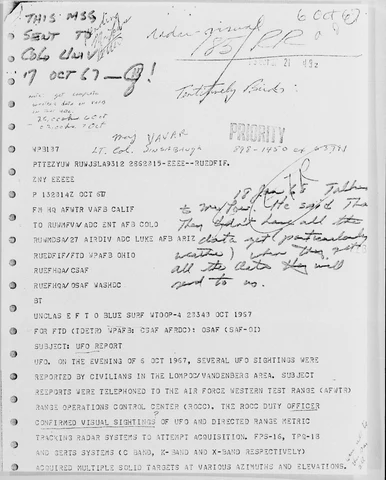 THIS MSG
SENT TO
COLO UNIV
17 OCT 67
6 OCT 67
radar-visual
Tentatively Birds:
PRIORITY
Maj
Lt. Col.
VPB137
PTTEZYUW RUWJSLA9312 2862315-EEEE--RUEDFIF.
ZNY EEEEE
P 132314Z OCT 67
FM HQ AFWTR VAFB CALIF
TO RUWMFVA/ADC ENT AFB COLO
RUWMDSA/27 AIRDIV ADC LUKE AFB ARIZ
RUEDFIF/FTD WPAFB OHIO
RUEFHQA/CSAF
RUEFHQA/OSAF WASHDC
BT
18 Jan 68 Talked
to Maj He said that
they didn't have all the
data yet (particularly
weather) when they get
all the data they will
send to us.
UNCLAS E F T O BLUE SURF WTOOP-4 23343 OCT 1967
FOR FTD (TDETR) WPAFB; CSAF AFRDC); OSAF (SAF-OI)
SUBJECT: UFO REPORT
UFO. ON THE EVENING OF 6 OCT 1967, SEVERAL UFO SIGHTINGS WERE
REPORTED BY CIVILIANS IN THE LOMPOC/VANDENBERG AREA. SUBJECT
REEPORTS WERE TELEPHONED TO THE AIR FORCE WESTERN TEST RANGE (AFWTR)
RANGE OPERATIONS CONTROL CENTER (ROCC). THE ROCC DUTY OFFICER
CONFIRMED VISUAL SIGHTINGS OF UFO AND DIRECTED RANGE METRIC
TRACKING RADAR SYSTEMS TO ATTEMPT ACQUISITION. FPS-16, TPQ-18
AND GERTS SYSTEMS (C BAND, K-BAND AND X-BAND RESPECTIVELY)
ACQUIRED MULTIPLE SOLID TARGETS AT VARIOUS AZIMUTHS AND ELEVATIONS.